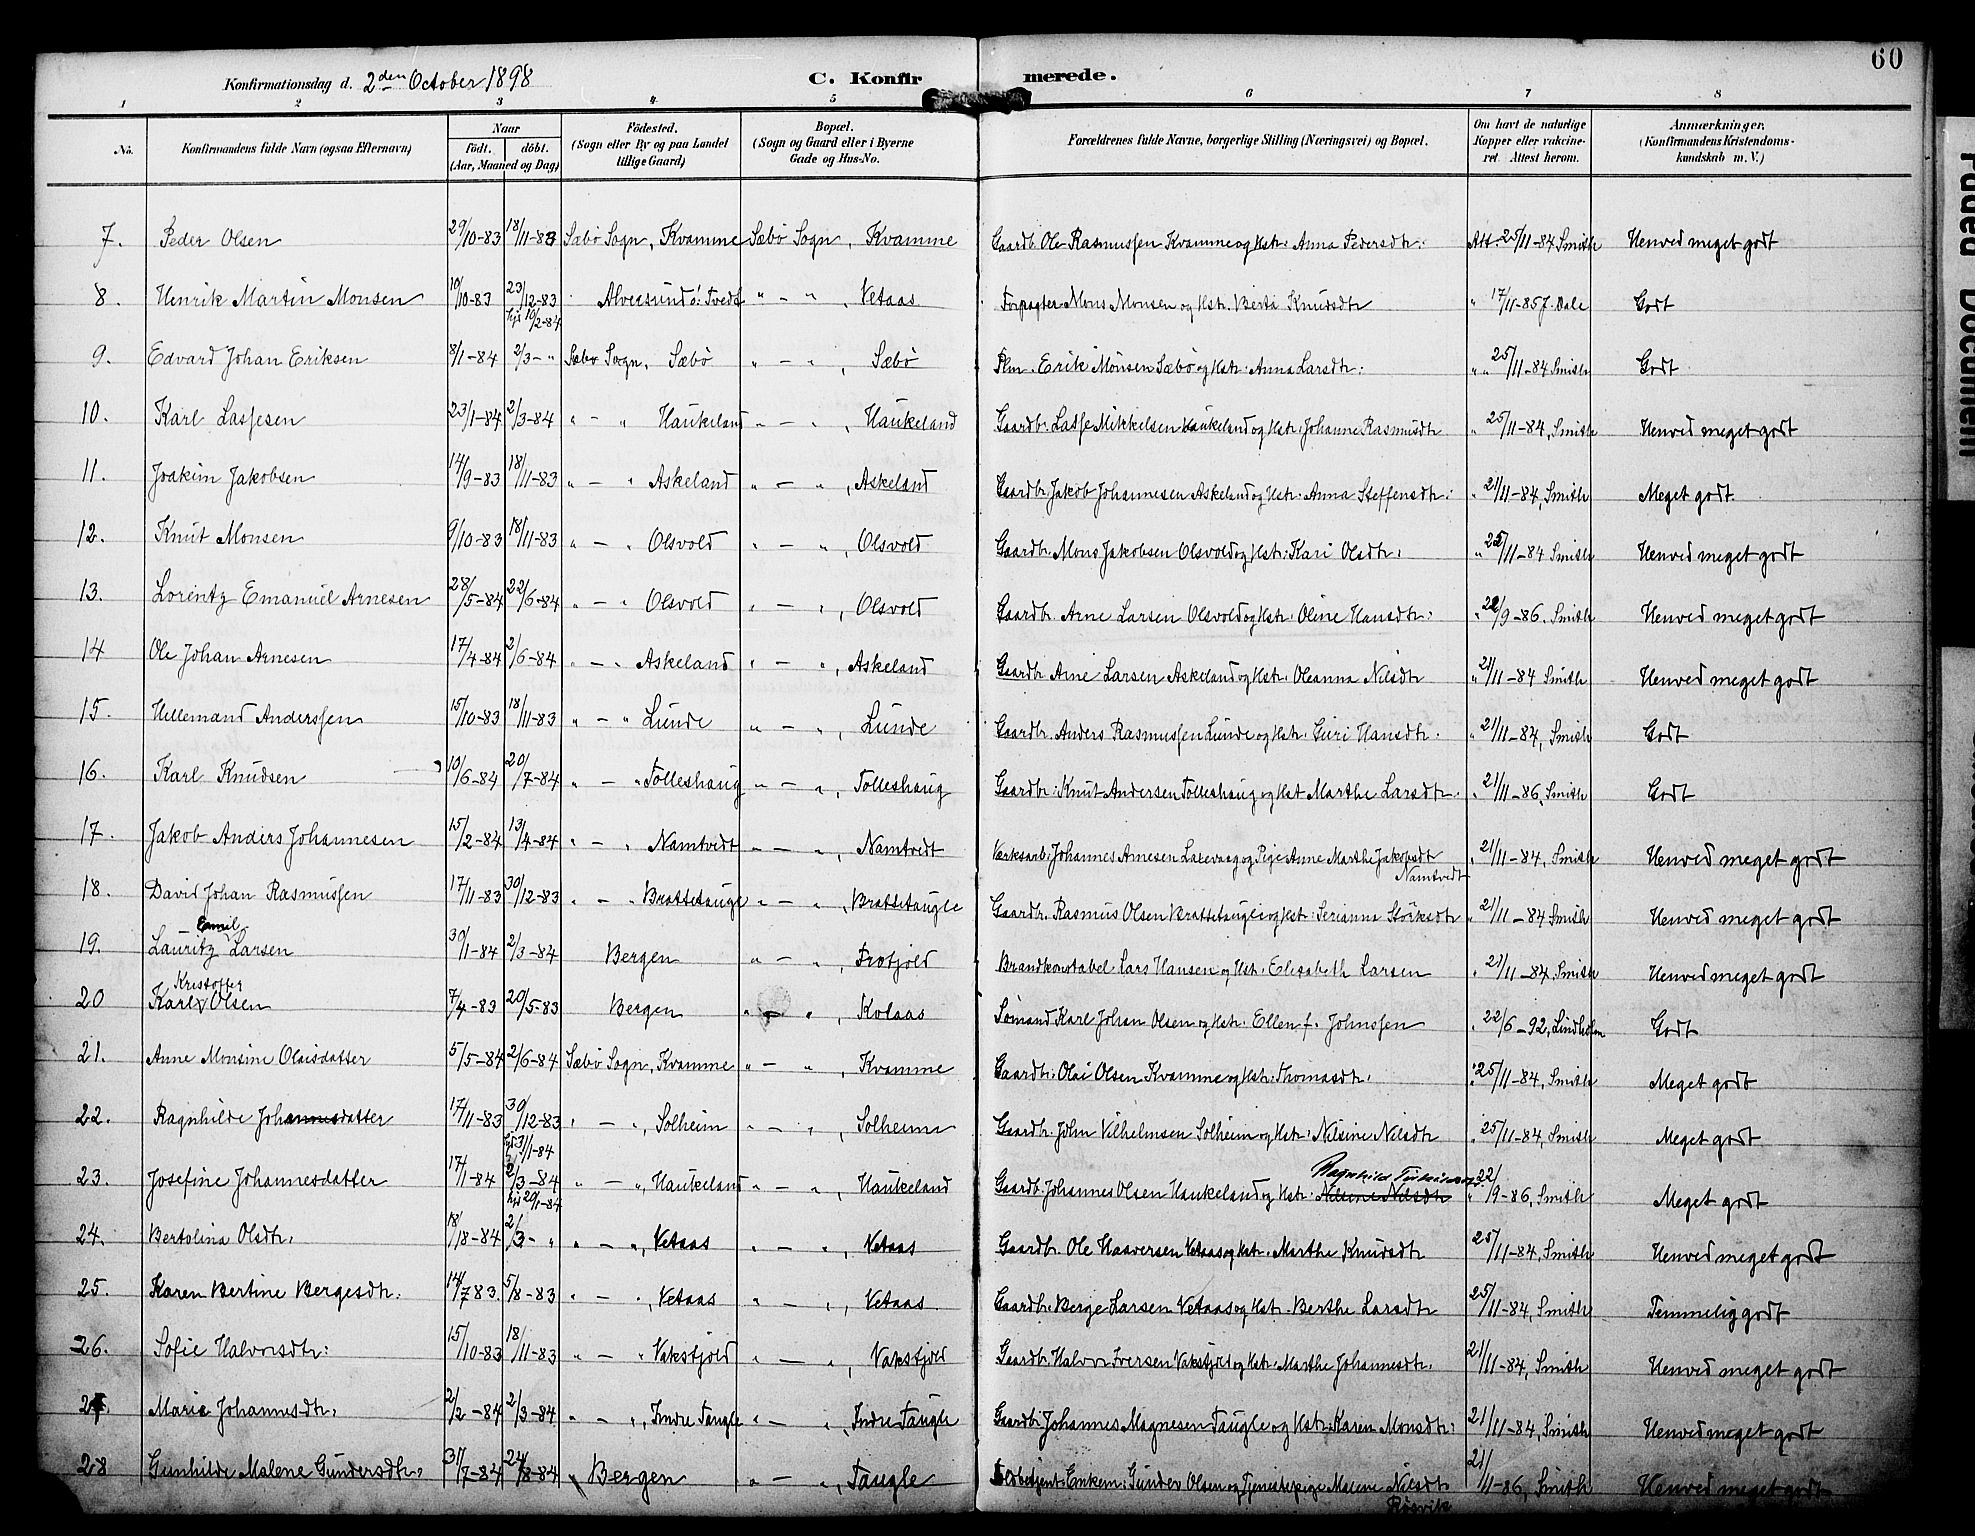 60
Konfirmationsdag d. 2den October 1898 C. Konfirmerede.
1 2 3 4 5 6 7 8
No. Konfirmandens fulde Navn (ogsaa Efternavn) Naar födt. döbt. (Aar, Maaned og Dag) Födested. (Sogn eller By og paa Landet tillige Gaard) Bopæl. (Sogn og Gaard eller i Byerne Gade og Hus-No. Forældrenes fulde Navne, borgerlige Stilling (Næringsvei) og Bopæl. Om havt de naturlige Kopper eller vakcineret. Attest herom. Anmærkninger. (Konfirmandens Kristendomskundskab m. V.)
7. Peder Olsen 29/10-83 18/11-83 Sæbö Sogn, Kvamme Sæbö Sogn, Kvamme Gaardb. Ole Rasmussen Kvamme og Hstr. Anna Pedersdtr. Att. 25/11-84 Smith Henved meget godt
8. Henrik Martin Monsen 10/10-83 23/12-83 hjd 10/2-84 Alversund s: Tvedt " - " , Vetaas Forpagter Mons Monsen og Hstr. Berta Knudsdtr " 17/11-85 J. Dale Godt
9. Edvard Johan Eriksen 8/1-84 2/3- " Sæbø Sogn, Sæbö " - " , Sæbö Pkm. Erik Monsen Sæbö og Hstr. Anna Larsdtr. " " 25/11-84 Smith Godt
10. Karl Lassesen 23/1-84 2/3-84 " - " Haukeland " - " , Haukeland Gaardb. Lasse Mikkelsen Haukeland og Hstr. Johanne Rasmusdtr " 25/11-84, Smith Henved meget godt
11. Joakim Jakobsen 14/9-83 18/11-83 " - " Askeland " - " , Askeland Gaardb. Jakob Johannesen Askeland og Hstr. Anna Steffensdtr. " 21/11-84, Smith Meget godt
12. Knut Monsen 9/10-83 18/11-83 " - " Olsvold " - " , Olsvold Gaardb. Mons Jakobsen Olsvold og Hstr. Kari Olsdtr. " 25/11-84 Smith Henved meget godt
13. Lorentz Emanuel Arnesen 28/5-84 22/6-84 " - " Olsvold " - " , Olsvold Gaardb. Arne Larsen Olsvold og Hstr. Oline Hansdtr. " 22/9-86. Smith Henved meget godt
14 Ole Johan Arnesen 17/4-84 2/6-84 " - " Askeland " - " , Askeland Gaardb. Arne Larsen Askeland og Hstr. Oleanna Nilsdtr " 21/11-84 Smith Henved meget godt
15. Hellemand Anderssen 15/10-83 18/11-83 " - " Lunde " - " , Lunde Gaardb. Anders Rasmussen Lunde og Hstr. Guri Hansdtr. " 21/11-84, Smith Godt
16. Karl Knudsen 10/6-84 20/7-84 " - " Tolleshaug " - " , Tolleshaug Gaardb: Knut Andersen Tolleshaug og Hst Marthe Larsdtr. " 21/11-86, Smith Godt
17. Jakob Anders Johannesen 15/2-84 13/4-84 " - " Namtvedt " - " , Namtvedt Værksarb. Johannes Arnesen Laxevaag og Pige Anne Marthe Jakobsdtr Namtvedt " 21/11-84, Smith Henved meget godt
18. David Johan Rasmussen 17/11-83 30/12-83 " - " Brattetaugle " - " , Brattetaugle Gaardb. Rasmus Olsen Brattetaugle og Hstr. Serianna Störksdtr " 21/11-84 Smith Henved meget godt
19. Lauritz Emil Larsen 30/1-84 2/3-84 Bergen " - " , Frotjold Brandkonstabel Lars Hansen og Hstr. Elisabeth Larsen " 21/11-84. Smith Henved meget godt
20 Karl Kristoffer Olsen 7/4-83 20/5-83 Bergen " - " , Kolaas Sømand Karl Johan Olsen og Hstr. Ellen f. Johnssen " 22/6-92, Lindholm Godt
21. Anne Monsine Olaisdatter 5/5-84 2/6-84 Sæbö Sogn, Kvamme " - " , Kvamme Gaardb: Olai Olsen Kvamme og Hstr. Thomasdtr. " 25/11-84, Smith Meget godt
22. Ragnhilde Johannesdatter 17/11-83 30/12-83 hjd 31/1-84 " - " , Solheim " - " , Solheim Gaardb. John Vilhelmsen Solheim og Hstr. Nilsine Nilsdtr " 25/11-84, Smith Meget godt
23. Josefine Johannesdatter 17/1-84 2/3-84 hjd 20/1-84 " - " , Haukeland " - " , Haukeland Gaardb. Johannes Olsen Haukeland og Hstr. Nilsine Nilsdtr Ragnhild " 22/9-86, Smith Meget godt
24. Bertolina Olsdtr. 18/18-84 2/3- " " - " , Vetaas " - " , Vetaas Gaardb. Ole Haaversen Vetaas og Hstr. Marthe Knudsdtr 25/11-84, Smith Henved meget godt
25. Karen Bertine Bergesdtr. 14/7 83. 5/8-83 " - " , Vetaas " - " , Vetaas Gaardb. Berge Larsen Vetaas og Hstr. Berthe Larsdtr 25/11-84, Smith Temmelig godt
26. Sofie Halvorsdtr: 15/10-83 18/11-83 " - " Vakstjold " - " , Vakstjold Gaardb. Halvor Iversen Vakstjold og Hstr. Marthe Johannesdtr. 21/11-84, Smith Henved meget godt
27. Marie Johannesdtr. 2/2-84 2/3-84. " - " , Indre Taugle " - " , Indre Taugle Gaardb. Johannes Magnesen Taugle og Hstr. Karen Monsdtr. 21/11-84, Smith Henved meget godt
28 Gunhilde Malene Gundersdtr. 31/7-84 24/8-84 " Bergen " - " , Taugle Enkem. Gunder Olsen og Tjenestepige Malene Nilsdtr Røsvik 21/1-86, Smith Henved meget godt